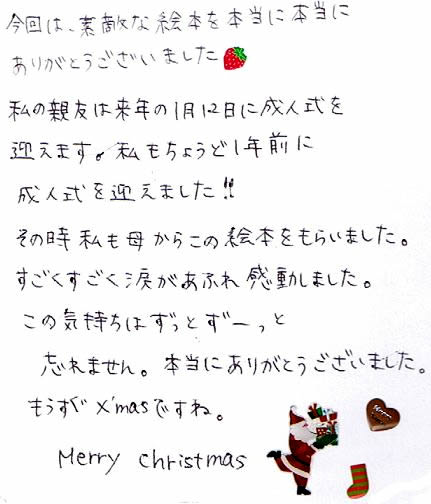 今回は、素敵な絵本を本当に本当に
ありがとうございました
私の親友は来年の1月12日に成人式を
迎えます。私もちょうど1年前に
成人式を迎えました!!
その時私も母からこの絵本をもらいました。
すごくすごく涙があふれ感動しました。
この気持ちはずっとずーっと
忘れません。本当にありがとうございました。
もうすぐX'masですね。
Merry christmas